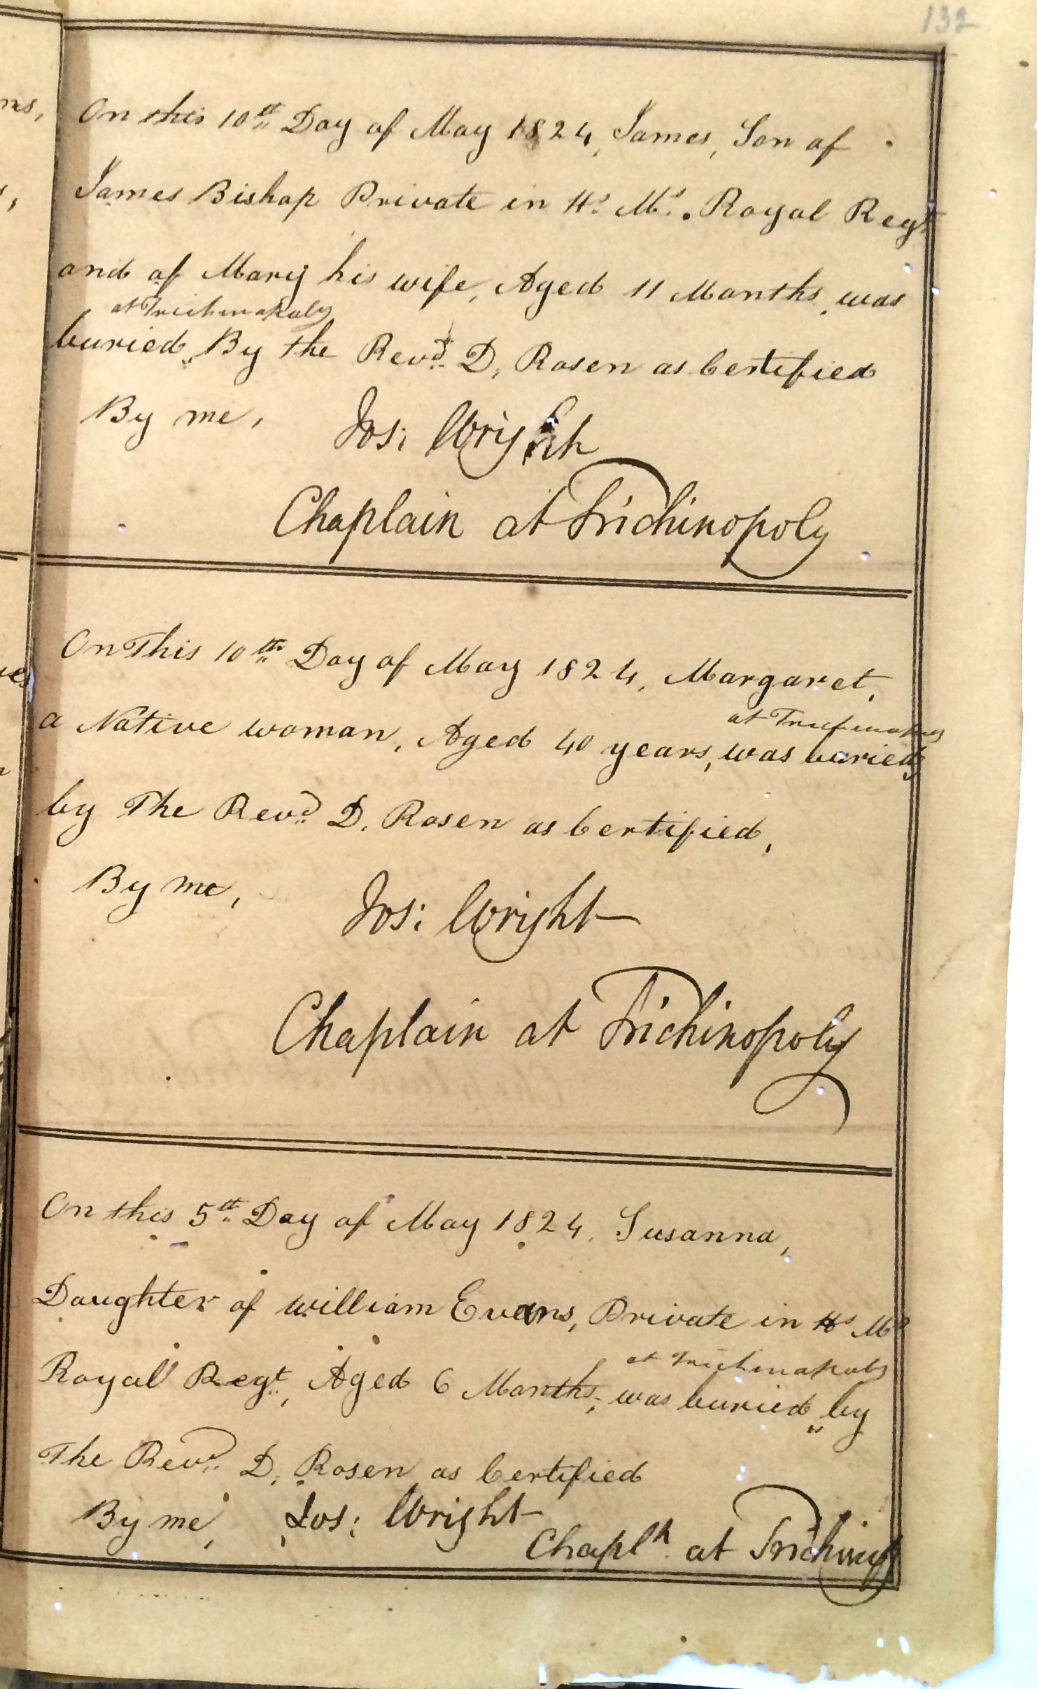 132
On this 10th Day of May 1824, James, Son of
James Bishop Private in H.s M.s Royal Regt
and of Mary his wife, Aged 11 Months, was
at Trichinapoly
buried By the Revd. D. Rosen as Certified
By me,
Jos: Wright
Chaplain at Trichinopoly
On This 10th Day of May 1824, Margaret,
a Native woman, Aged 40 years, was buried
by The Revd. D. Rosen as Certified,
By me,
Jos: Wright
Chaplain at Trichinopoly
On this 5th Day of May 1824. Susanna,
Daughter of William Evans, Private in Hs Ms
Royal Regt, Aged 6 Months, was buried by
The Revd. D. Rosen as Certified
By me, Jos: Wright
Chapln at